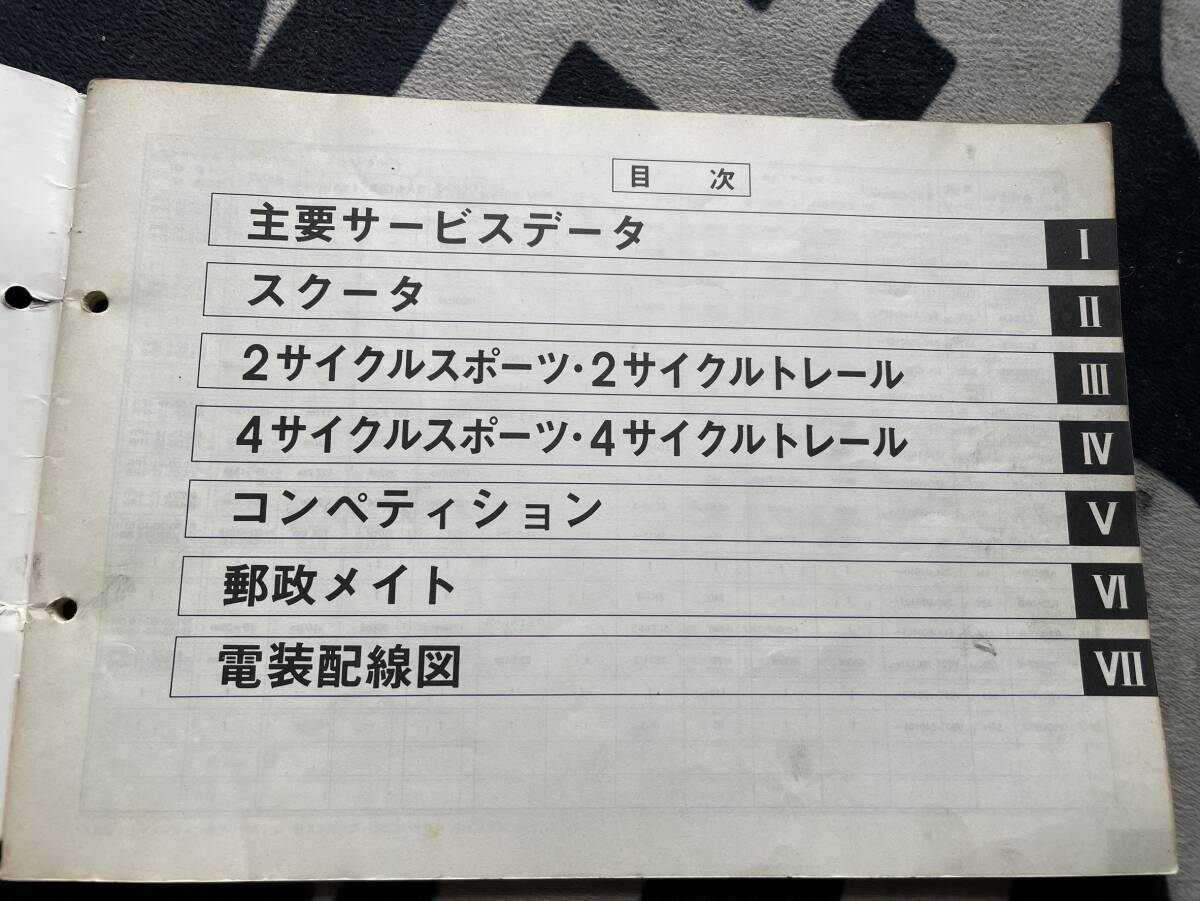 目 次
主要サービスデータ I
スクータ II
2サイクルスポーツ・2サイクルトレール III
4サイクルスポーツ・4サイクルトレール IV
コンペティション V
郵政メイト VI
電装配線図 VII